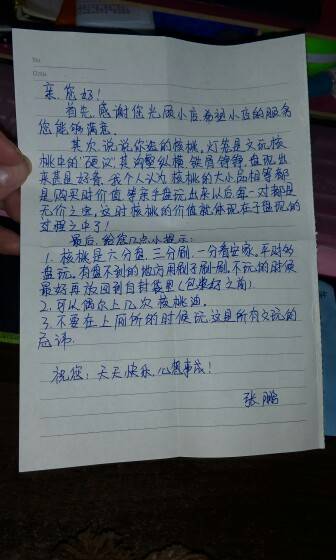 No
Date
亲,您好!
首先,感谢您光顾小店,希望小店的服务
您能够满意.
其次,说说你选的核桃,灯笼是文玩核
桃中的"硬汉",其沟壑纵横,铁骨铮铮,盘玩出
来甚是好看,我个人认为核桃的大小品相等都
是购买时价值,等亲手盘玩出来以后,每一对都是
无价之宝,这时核桃的价值就体现在于盘玩的
过程之中了!
最后,给您几点小提示:
1. 核桃是六分盘,三分刷,一分看安家,平时多
盘玩,有盘不到的地方用刷子刷刷,不玩的时候
最好再放回到自封袋里(包浆好之前)
2. 可以偶尔上几次核桃油.
3. 不要在上厕所的时候玩,这是所有文玩的
忌讳.
祝您:天天快乐,心想事成!
张鹏